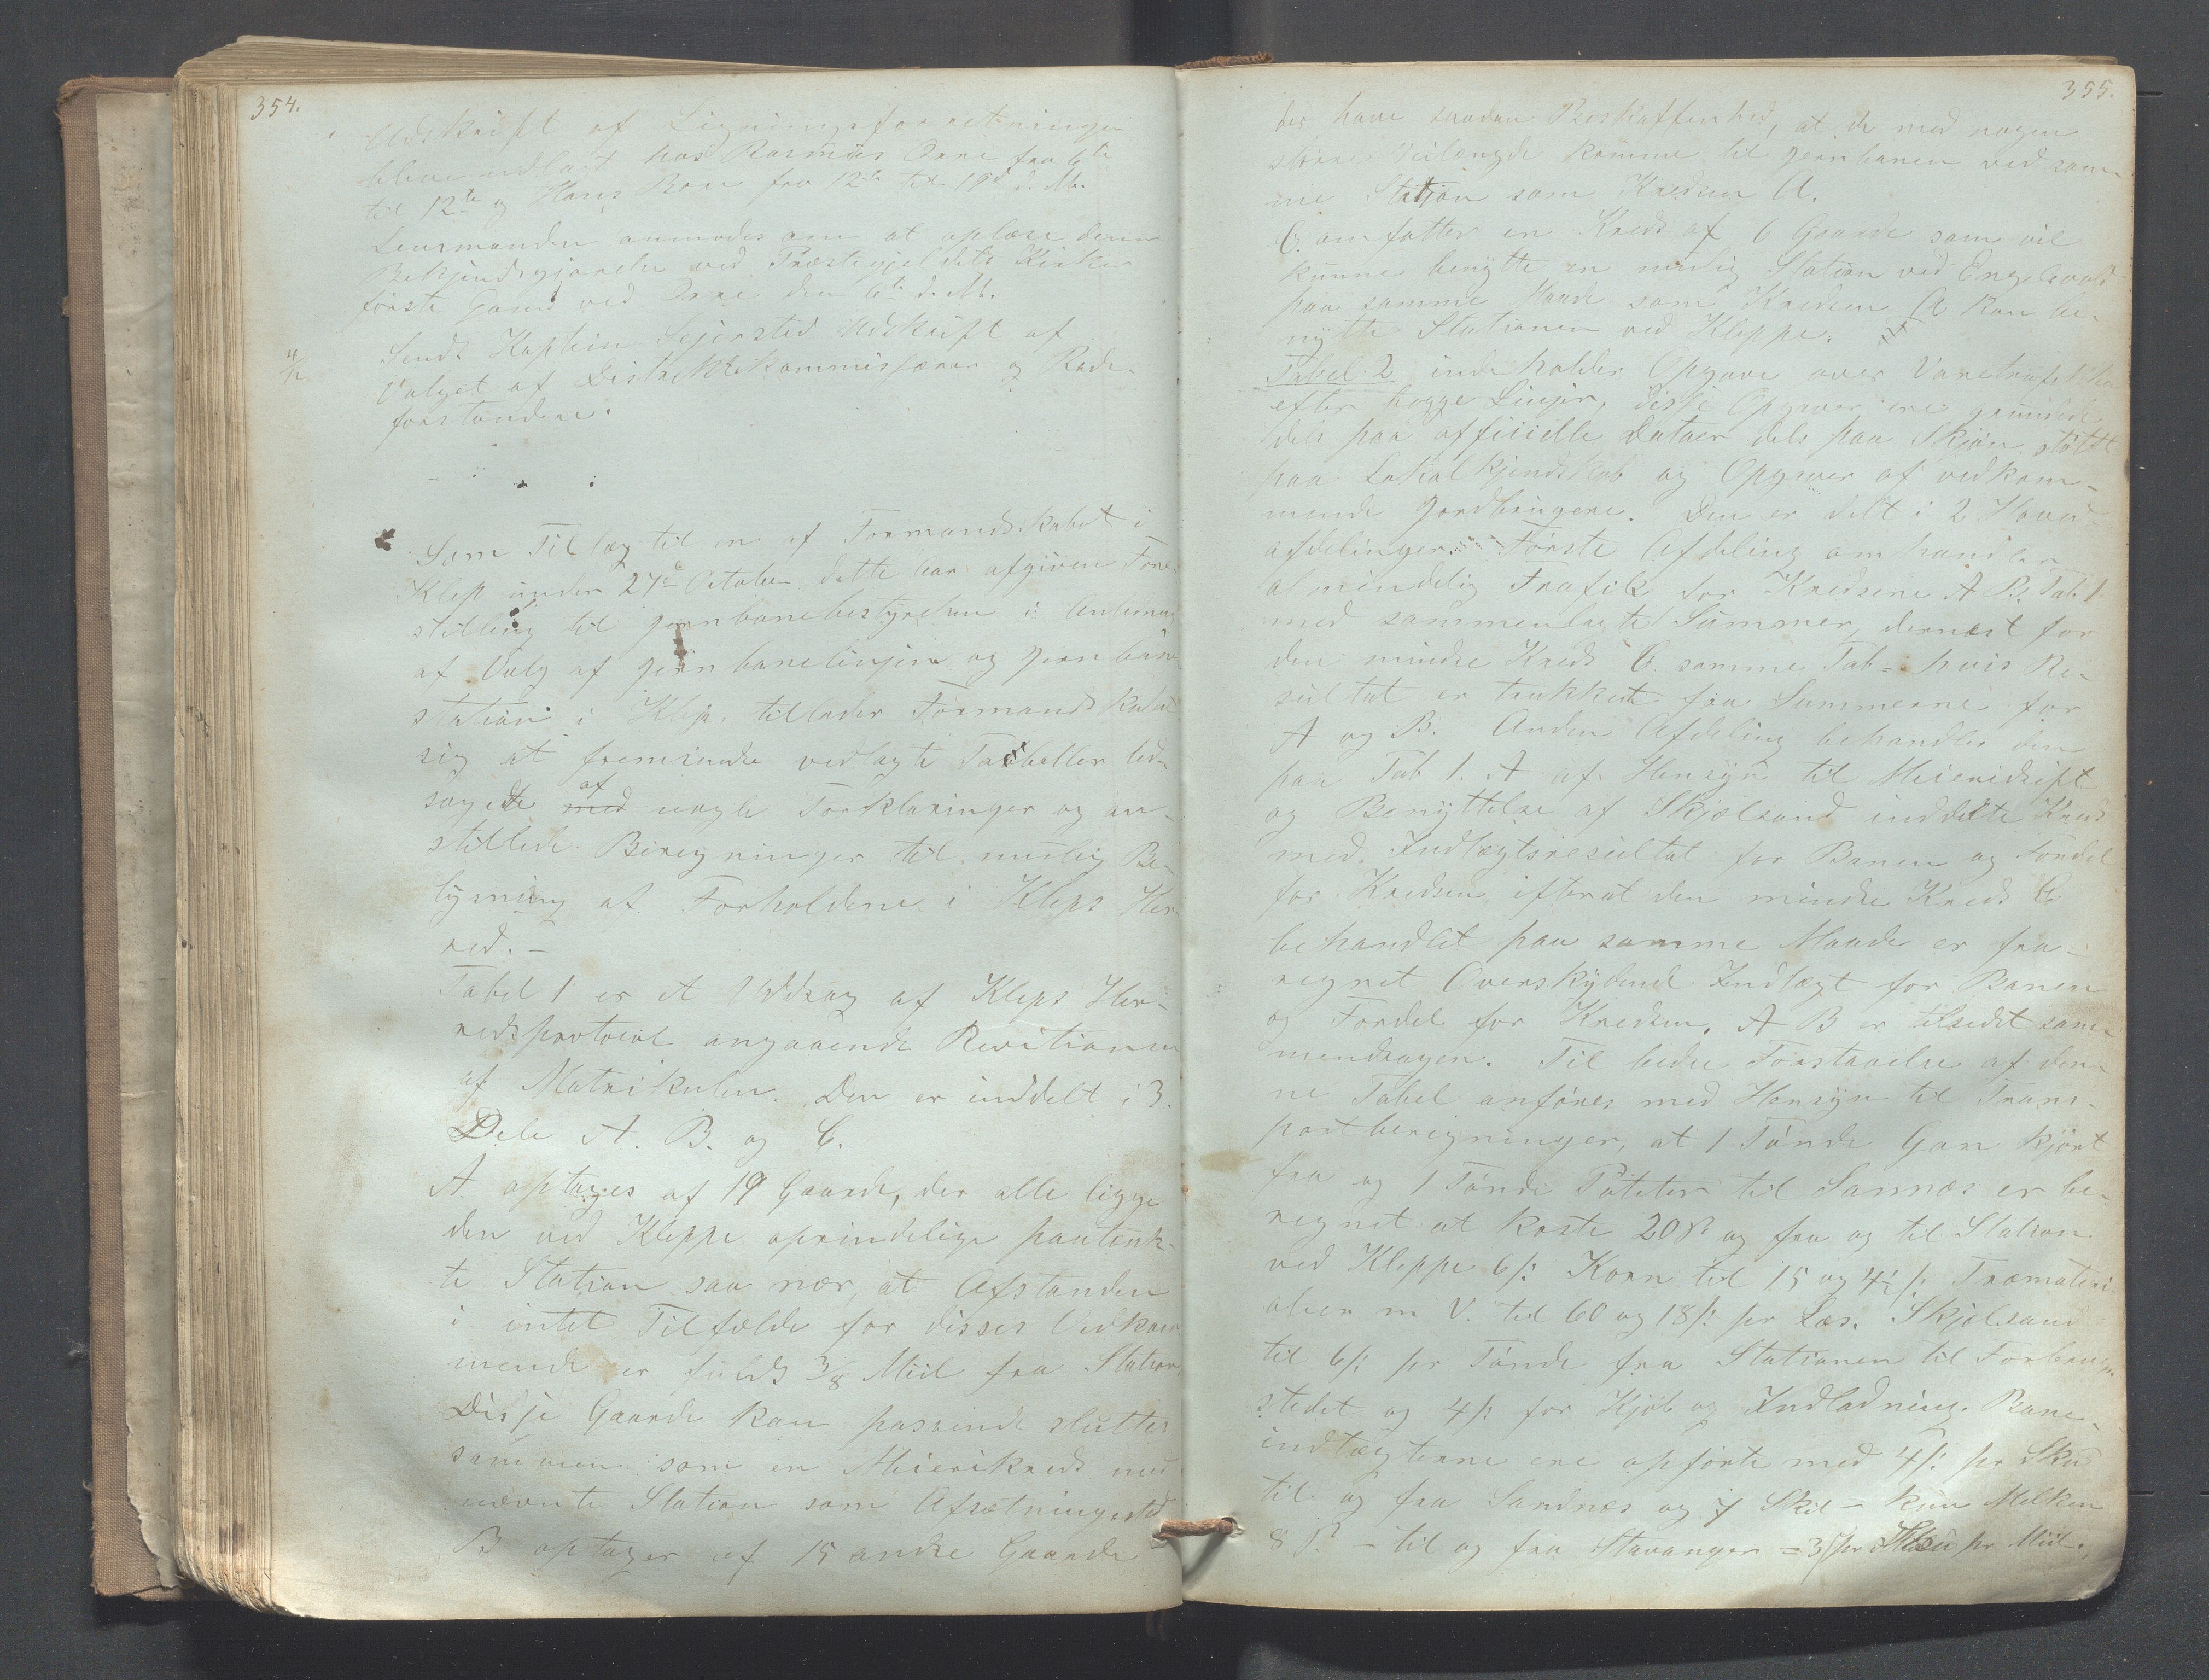 354.
Udskrift af Ligningsforretningen
blive udlagt hos Rasmus Orre fra 6te
til 12te og Hans Bore fra 12te til 19de d. M.
Lensmanden anmodes om at oplæse denne
Bekjendtgjørelse ved Præstegjeldets Kirker
første Gang ved Orre den 6te d. M.
4/12 Sendt Kaptein Sejersted Udskrift af
Valget af Distriktskommissærer og Rode-
forstandere.
Som Tillæg til en af Formandskabet i
Klep under 27de October dette Aar afgiven Fore-
stilling til Jernbanebestyrelsen i Anlednin
af Valg af Jernbanelinjen og Jernbane
station i Klep, tillader Formandskabet
sig at fremsende vedlagte Tabeller led-
sagede med af nogle Forklaringer og an-
stillede Beregninger til mulig Be-
lysning af Forholdene i Kleps Her-
red. -
Tabel 1 er et Uddrag af Kleps Her-
redsprotocol angaaende Revitionen
af Matrikulen. Den er inddelt i 3.
Dele A. B. og C.
A. optages af 19 Gaarde, der alle ligge
den ved Kleppe oprindelige paatænk-
te Station saa nær, at Afstanden
i intet Tilfælde for disses Vedkom-
mende er fuldt 3/8 Miil fra Station.
Disse Gaarde kan passende sluttes
sammen som en Meierikreds med
nævnte Station som Afsætningssted
B optages af 15 andre Gaarde
355.
der have saadan Beskaffenhed, at de med nogen
større Veilængde komme til Jernbanen ved sam-
me Station som Kredsen A.
C. omfatter en Kreds af 6 Gaarde som vil
kunne benytte en mulig Station ved Engelsvold
paa samme Maade som Kredsen A kan be-
nytte Stationen ved Kleppe.
Tabel 2 indeholder Opgave over Varetrafikken
efter begge Linjer, disse Opgaver ere grundede
dels paa officielle Dataer dels paa Skjøn støttet
paa Lokalkjendskab og Opgaver af vedkom-
mende Jordbrugere. Den er delt i 2 Hoved-
afdelinger. Første Afdeling omhandler
almindelig Trafik for Kredsene A B. Tab 1
med sammenlagte Summer, dernæst for
den mindre Kreds C. samme Tab- hvis Re-
sultat er trukket fra Summerne for
A og B. Anden Afdeling behandler den
paa Tab 1. A af Hensyn til Meieridrift
og Benyttelse af Skjælsand inddelte Kreds
med Indtægtsresultat for Banen og Fordel
for Kredsen efterat den mindre Kreds C
behandlet paa samme Maade er fra-
regnet Overskydende Indtægt for Banen
og Fordel for Kredsen. A B er tilsidst sam-
mendragen. Til bedre Forstaaelse af den-
ne Tabel anføres med Hensyn til Trans-
portberegninger, at 1 Tønde Gan kjørt
fra og 1 Tønde Poteter til Sannæs er be-
regnet at koste 20 ß og fra og til Station
ved Kleppe 6 ß: Korn til 15 og 4½ ß: Træmateri-
alier m V. til 60 og 18 ß: pr Læs. Skjælsand
til 6 ß: pr Tønde fra Stationen til Forbrugs-
stedet og 4 ß: for Kjøb og Indladning. Bane-
indtægterne ere opførte med 4 ß: pr
til og fra Sandnæs og 7 Skil - kun Melken
8 ß. - til og fra Stavanger = 3 ß pr pr Miil.